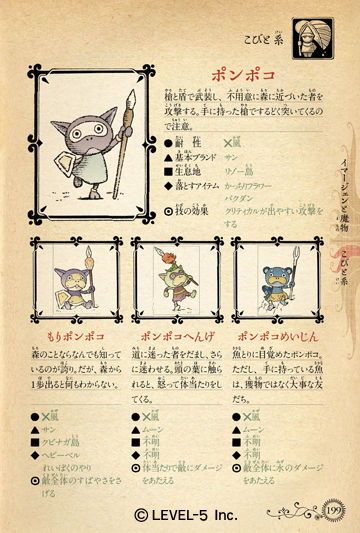 こびと系
ポンポコ
槍と盾で武装し、不用意に森に近づいた者を
攻撃する。手に持った槍でするどく突いてくるの
で注意。
●耐 性 ×風
▲基本ブランド サン
■生息地 リゾー島
◆落とすアイテム かっちりフラワー
バクダン
◎技の効果 クリティカルが出やすい攻撃を
する
イマージェンと魔物 こびと系
もりポンポコ
森のことならなんでも知って
いるのが誇り。だが、森から
1歩出ると何もわからない。
●×風
▲サン
■クビナガ島
◆ヘビーベル
れいぼくのやり
◎敵全体のすばやさをさ
げる
ポンポコへんげ
道に迷った者をだまし、さら
に迷わせる。頭の葉に触ら
れると、怒って体当たりをし
てくる。
●×風
▲ムーン
■不明
◆不明
◎体当たりで敵にダメージ
をあたえる
ポンポコめいじん
魚とりに目覚めたポンポコ。
ただし、手に持っている魚
は、獲物ではなく大事な友
だち。
●×風
▲ムーン
■不明
◆不明
◎敵全体に水のダメージ
をあたえる
199
© LEVEL-5 Inc.